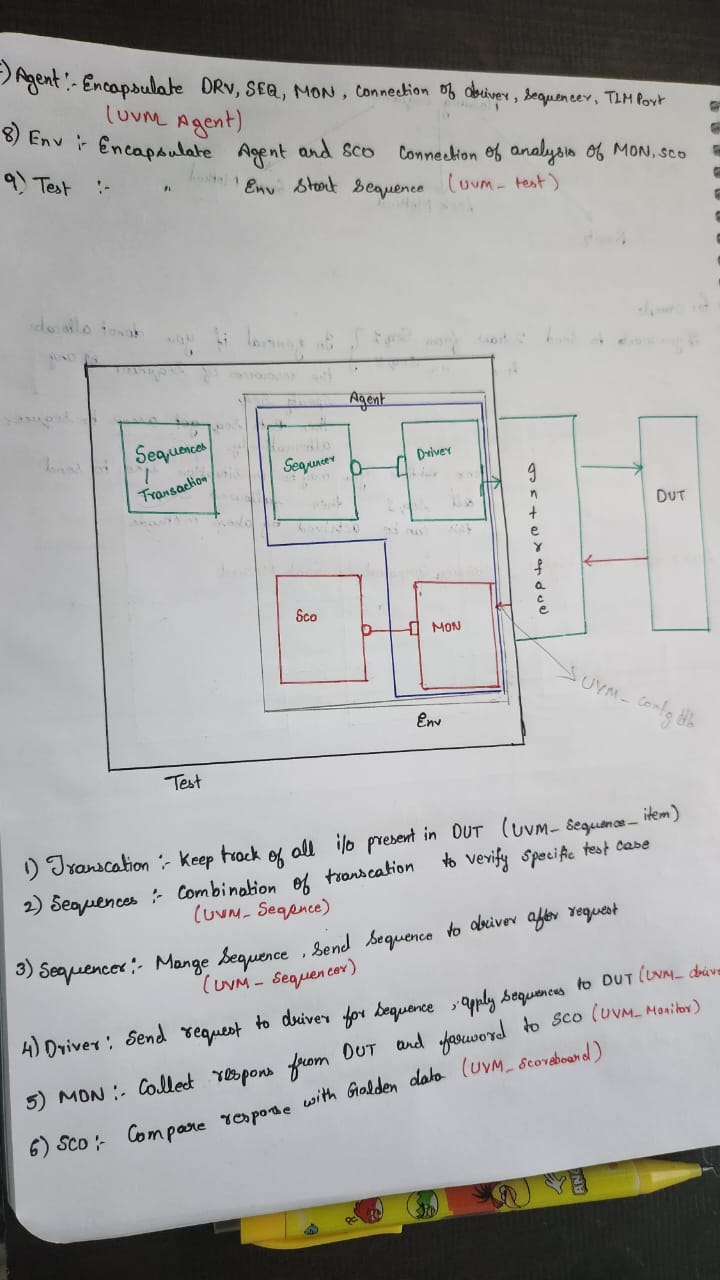 ) Agent :- Encapsulate DRV, SEQ, MON, Connection of driver, Sequencer, TLM Port
(UVM Agent)
8) Env :- Encapsulate Agent and SCO Connection of analysis of MON, SCO
9) Test :- " Env Start Sequence (UVM- test)
Agent
Sequences
Transaction
Sequncer
Driver
Interface
DUT
Sco
MON
UVM_ Config db
Env
Test
1) Transcation :- Keep track of all i/o present in DUT (UVM_ Sequence_ item)
2) Sequences :- Combination of transcation to verify specific test case
(UVM_ Seqence)
3) Sequencer :- Mange Sequence, Send Sequence to driver after request
(UVM - Sequencer)
4) Driver : Send request to driver for Sequence, apply Sequences to DUT (UVM_ drive
5) MON :- Collect respons from DUT and forword to SCO (UVM_ Monitor)
6) SCO :- Compare response with Golden data (UVM_ Scoreboard)